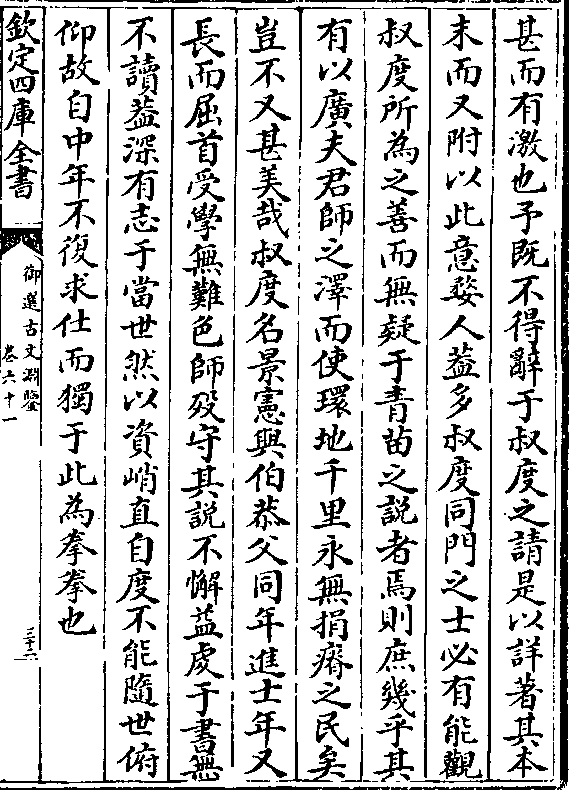 甚而有激也予既不得辭于叔度之請是以詳著其本
末而又附以此意婺人葢多叔度同門之士必有能觀
叔度所為之善而無疑于青苗之説者焉則庶幾乎其
有以廣夫君師之澤而使環地千里永無捐瘠之民矣
豈不又甚美哉叔度名景憲與伯恭父同年進士年又
長而屈首受學無難色師歿守其説不懈益虔于書無
不讀葢深有志于當世然以資峭直自度不能隨世俯
仰故自中年不復求仕而獨于此為拳拳也
欽定四庫全書
御選古文淵鑒
卷六十一
三十六